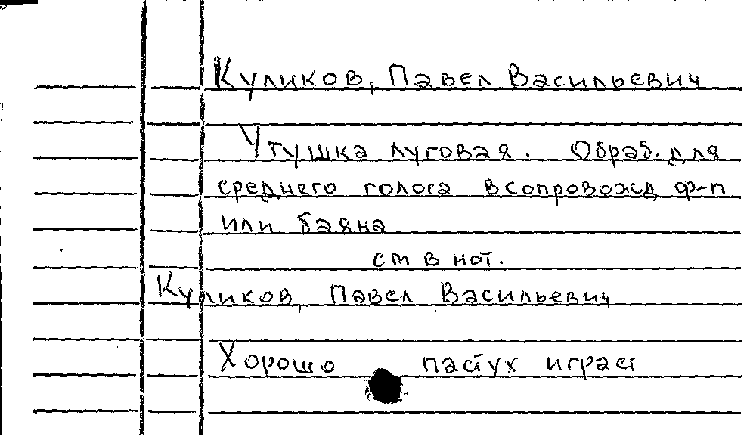 Куликов, Павел Васильевич
Утушка луговая. Обраб. для
среднего голоса в сопровожд ф-п
или баяна
см в нот.
Куликов, Павел Васильевич
Хорошо пастух играет